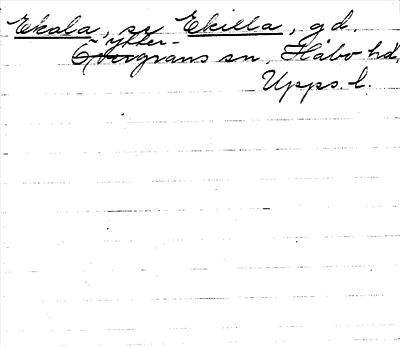 Ekala, se Ekilla, gd.
Ytter-
Övergrans sn, Håbo hd,
Upps. l.